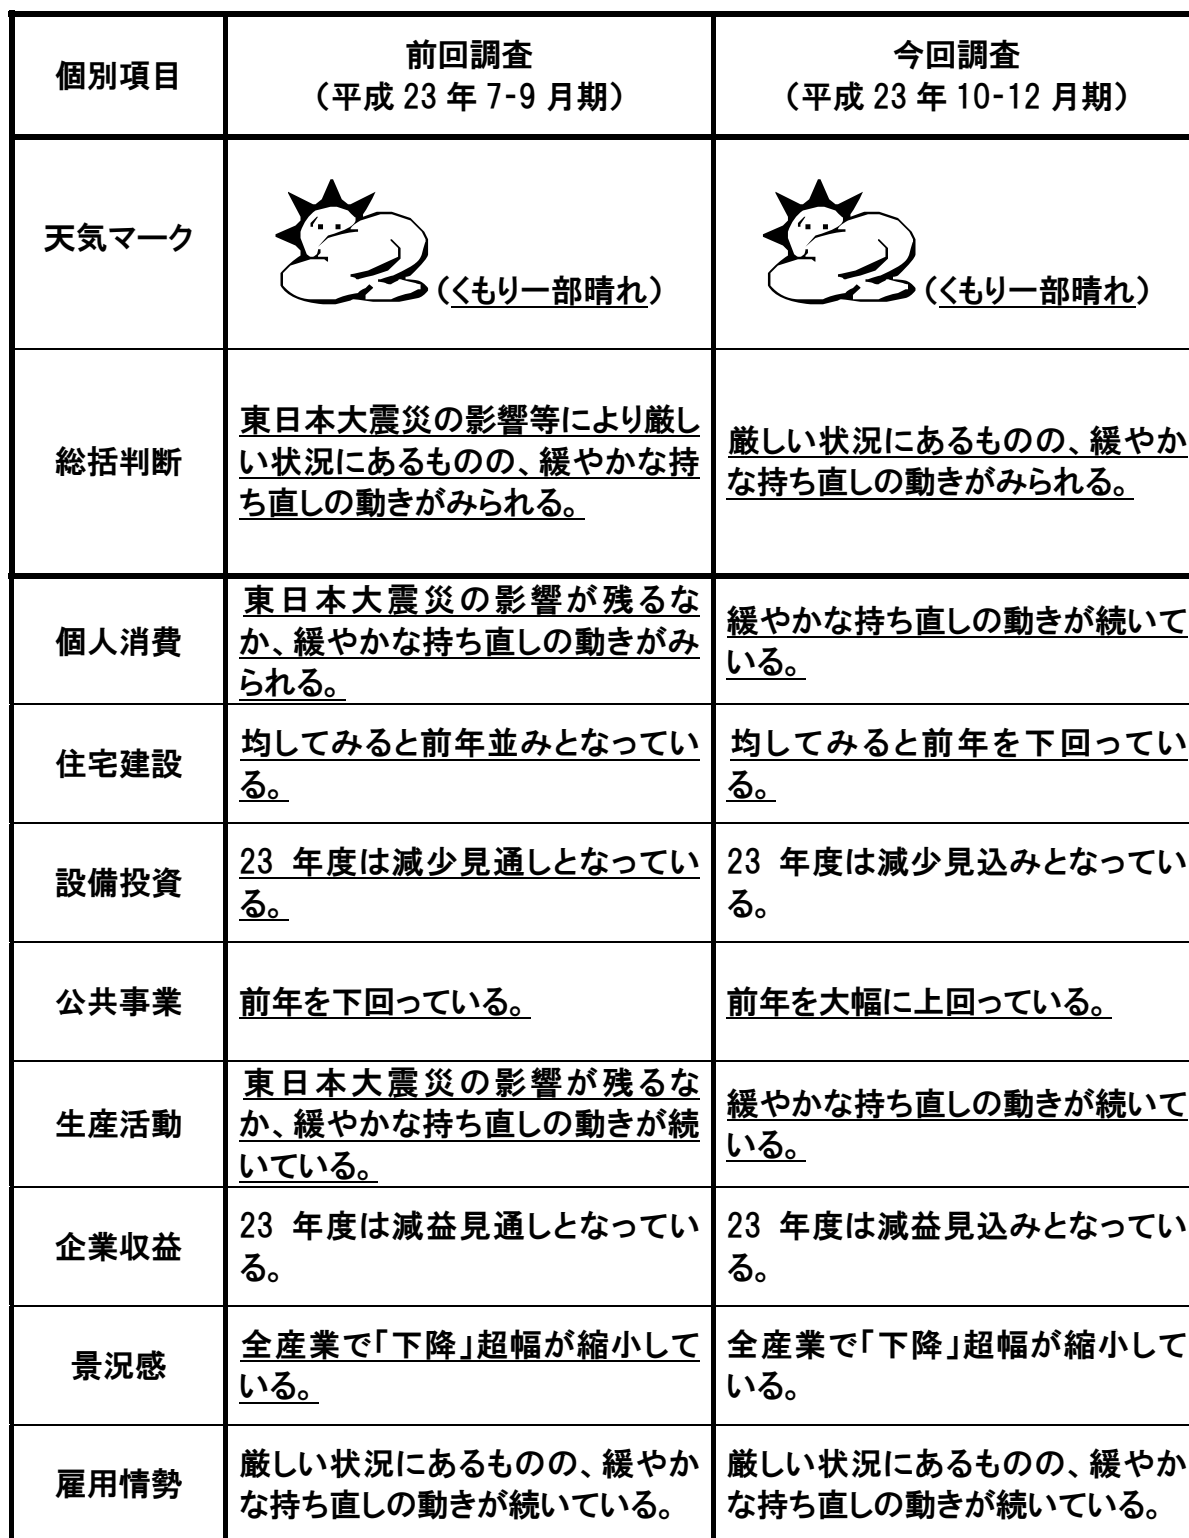 個別項目
前回調査
（平成 23 年 7-9 月期）
今回調査
（平成 23 年 10-12 月期）
天気マーク
（くもり一部晴れ）
（くもり一部晴れ）
総括判断
東日本大震災の影響等により厳し
い状況にあるものの、緩やかな持
ち直しの動きがみられる。
厳しい状況にあるものの、緩やか
な持ち直しの動きがみられる。
個人消費
東日本大震災の影響が残るな
か、緩やかな持ち直しの動きがみ
られる。
緩やかな持ち直しの動きが続いて
いる。
住宅建設
均してみると前年並みとなってい
る。
均してみると前年を下回ってい
る。
設備投資
23 年度は減少見通しとなってい
る。
23 年度は減少見込みとなってい
る。
公共事業
前年を下回っている。
前年を大幅に上回っている。
生産活動
東日本大震災の影響が残るな
か、緩やかな持ち直しの動きが続
いている。
緩やかな持ち直しの動きが続いて
いる。
企業収益
23 年度は減益見通しとなってい
る。
23 年度は減益見込みとなってい
る。
景況感
全産業で「下降」超幅が縮小して
いる。
全産業で「下降」超幅が縮小して
いる。
雇用情勢
厳しい状況にあるものの、緩やか
な持ち直しの動きが続いている。
厳しい状況にあるものの、緩やか
な持ち直しの動きが続いている。